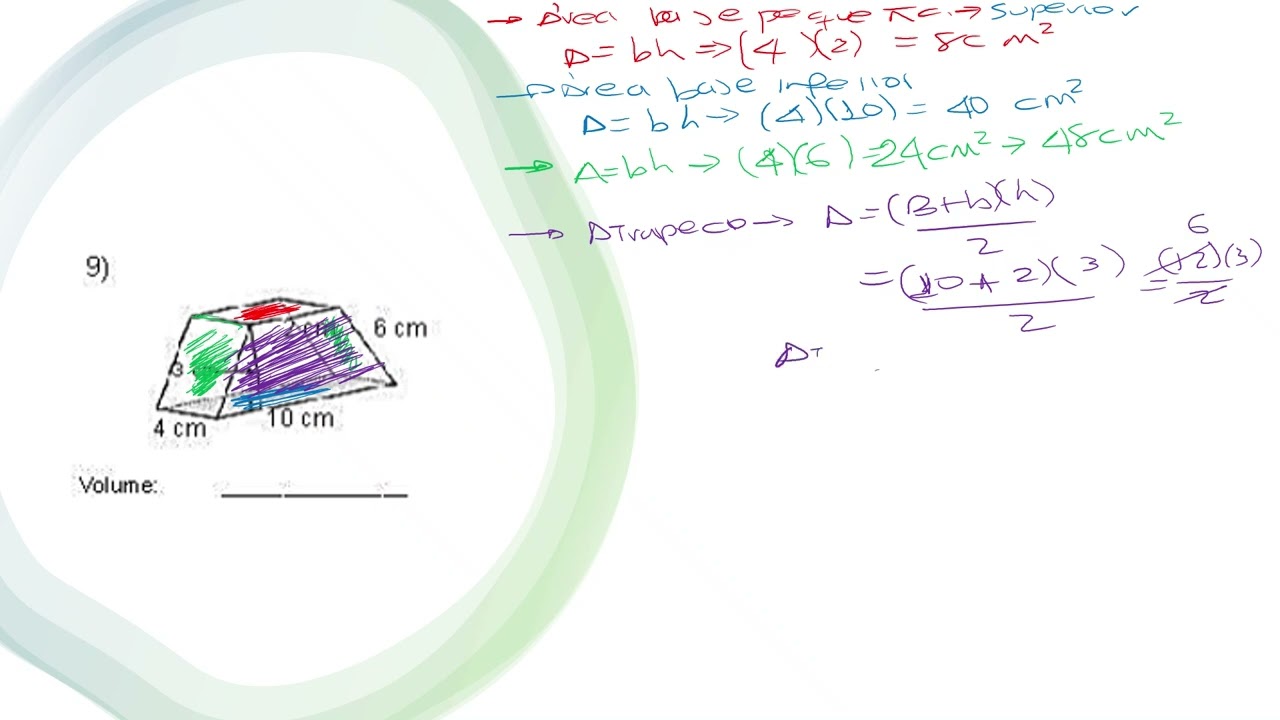 → Área base pequeña → superior
A = bh ⇒ (4)(2) = 8cm²
→ Área base inferior
A = bh → (4)(10) = 40 cm²
→ A=bh → (4)(6)=24cm² → 48cm²
→ ATrapecio → A = (B+b)(h)
2
= (10+2)(3)
2
6
= (12)(3)
2
AT
9)
2 cm
6 cm
3
10 cm
4 cm
Volume: